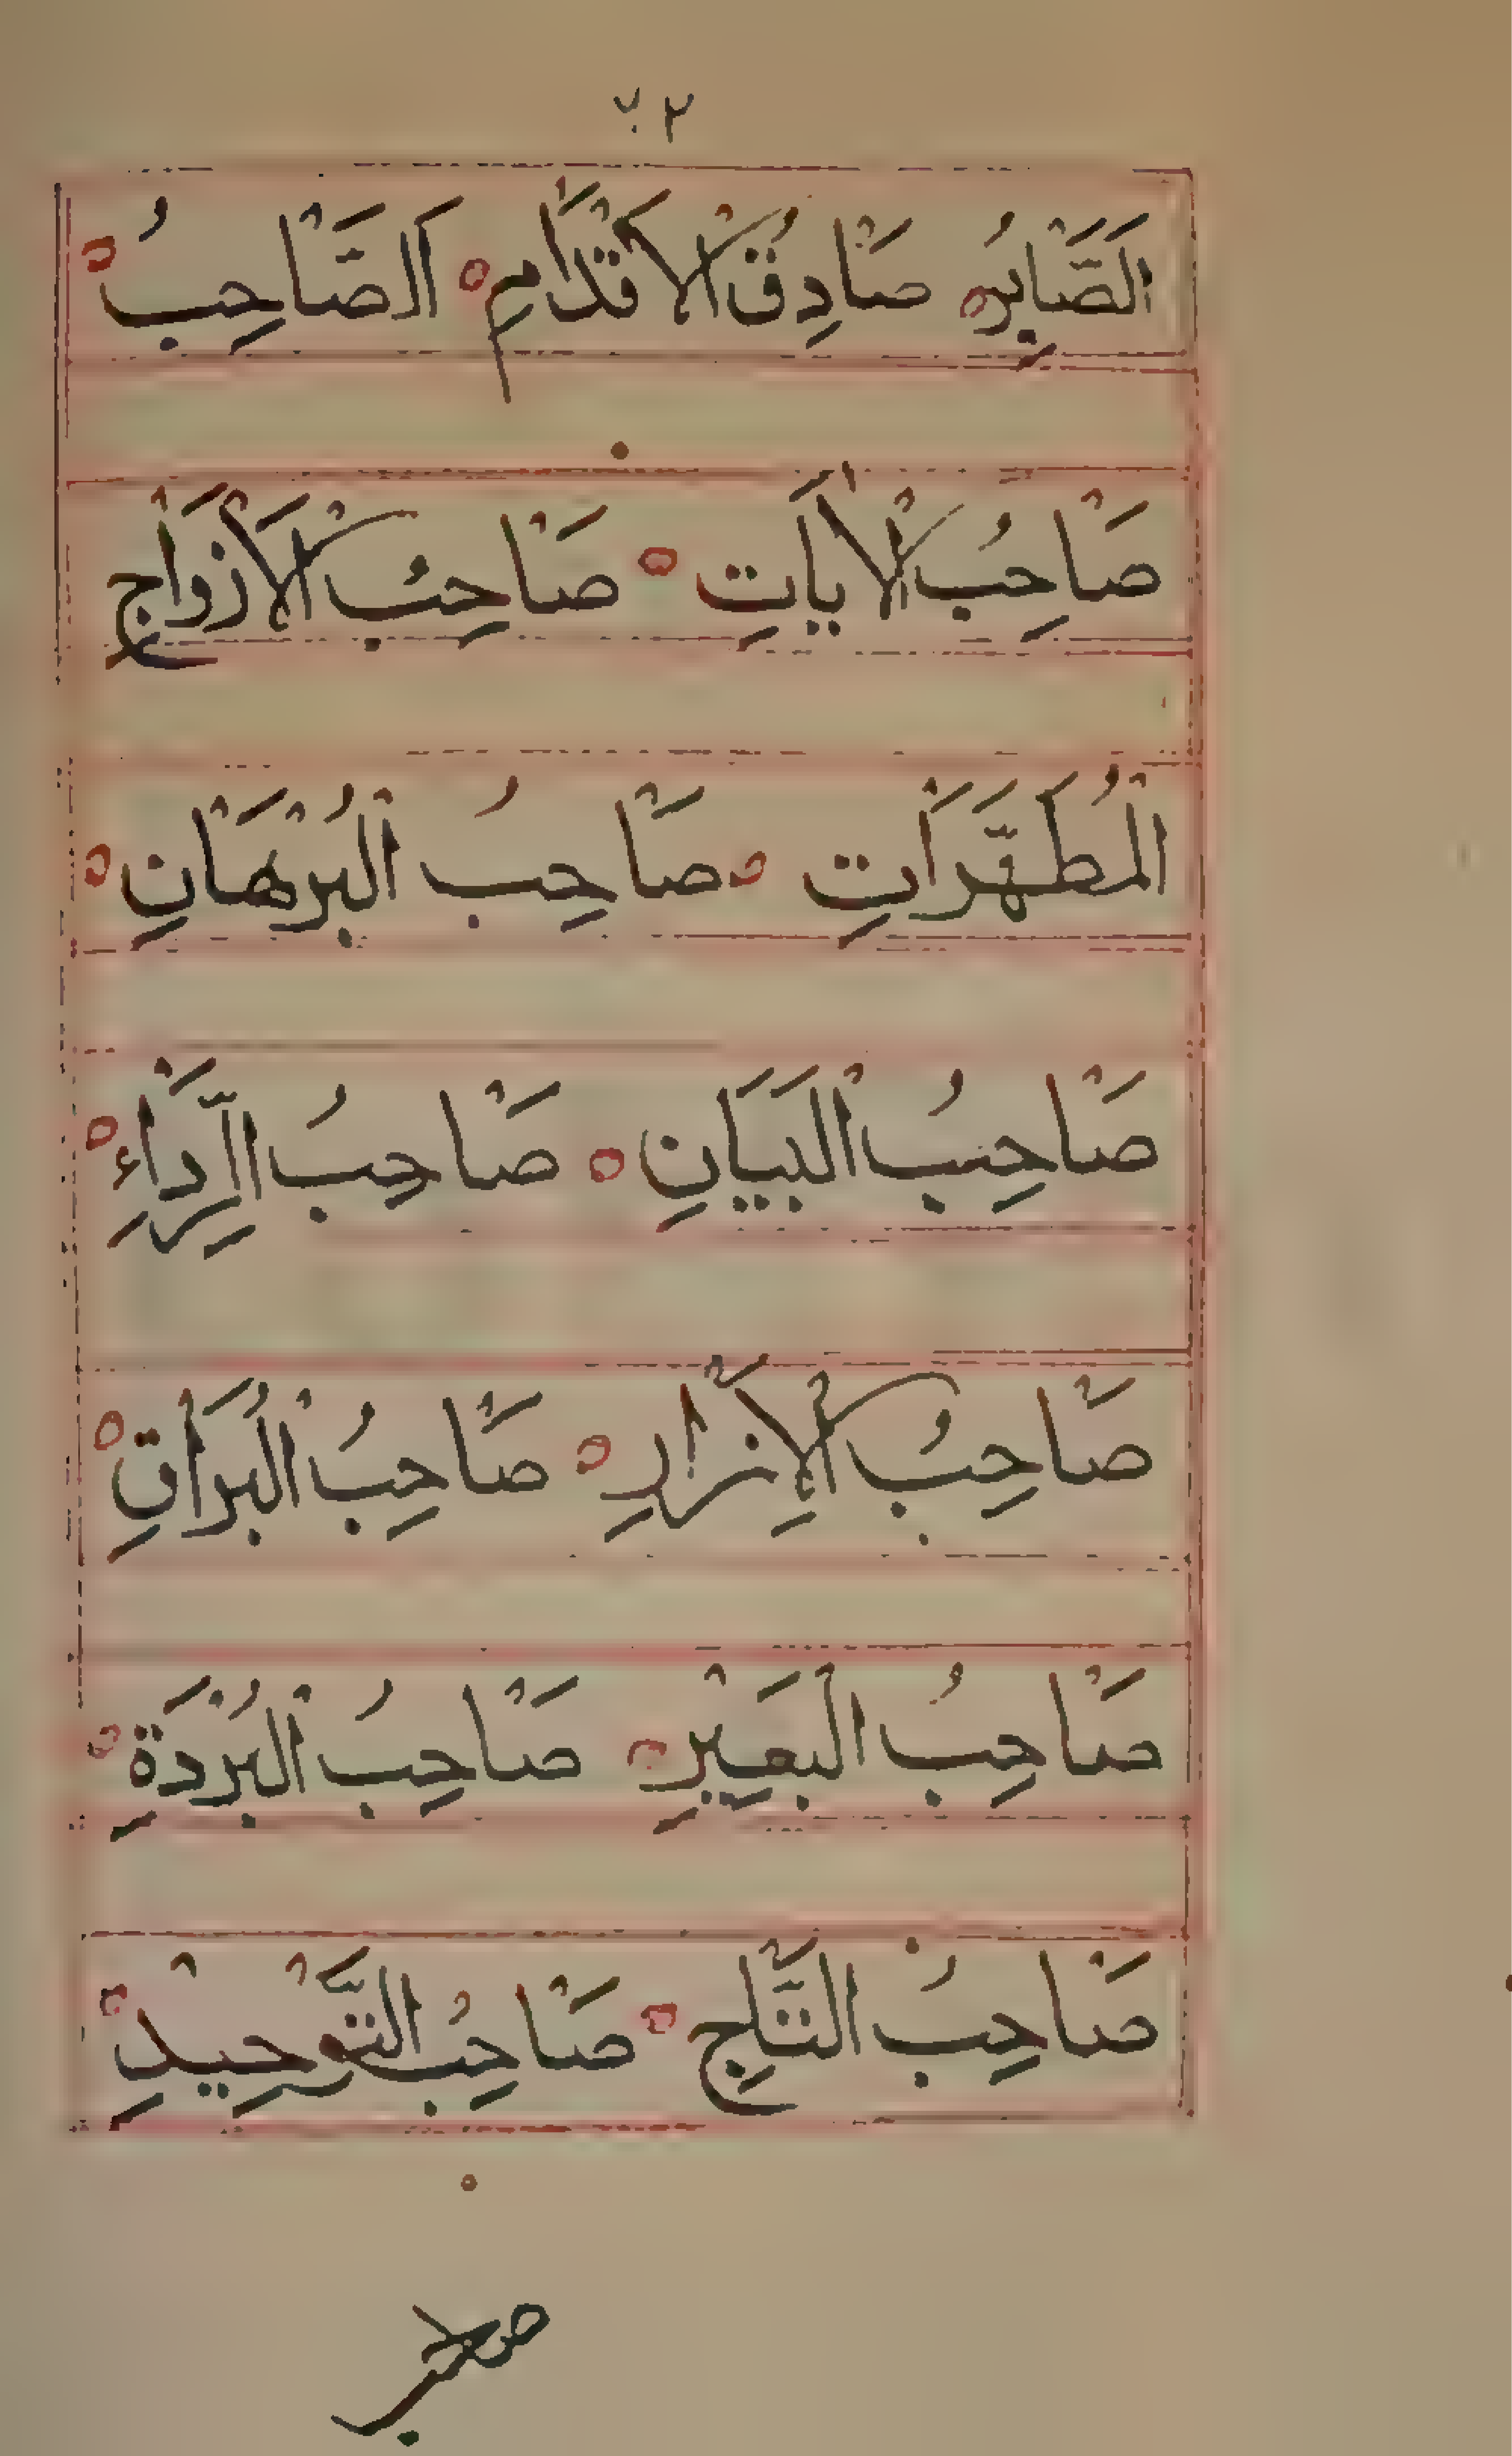 اَلصَّابِرُ صَادِقُ الْاَقْدَامِ اَلصَّاحِبُ
صَاحِبُ الْاٰيَاتِ صَاحِبُ الْاَزْوَاجِ
الْمُطَهَّرَاتِ صَاحِبُ الْبُرْهَانِ
صَاحِبُ الْبَيَانِ صَاحِبُ الرِّدَاءِ
صَاحِبُ الْاِزَارِ صَاحِبُ الْبُرَاقِ
صَاحِبُ الْبَعِيْرِ صَاحِبُ الْبُرْدَةِ
صَاحِبُ التَّاجِ صَاحِبُ التَّوْحِيْدِ